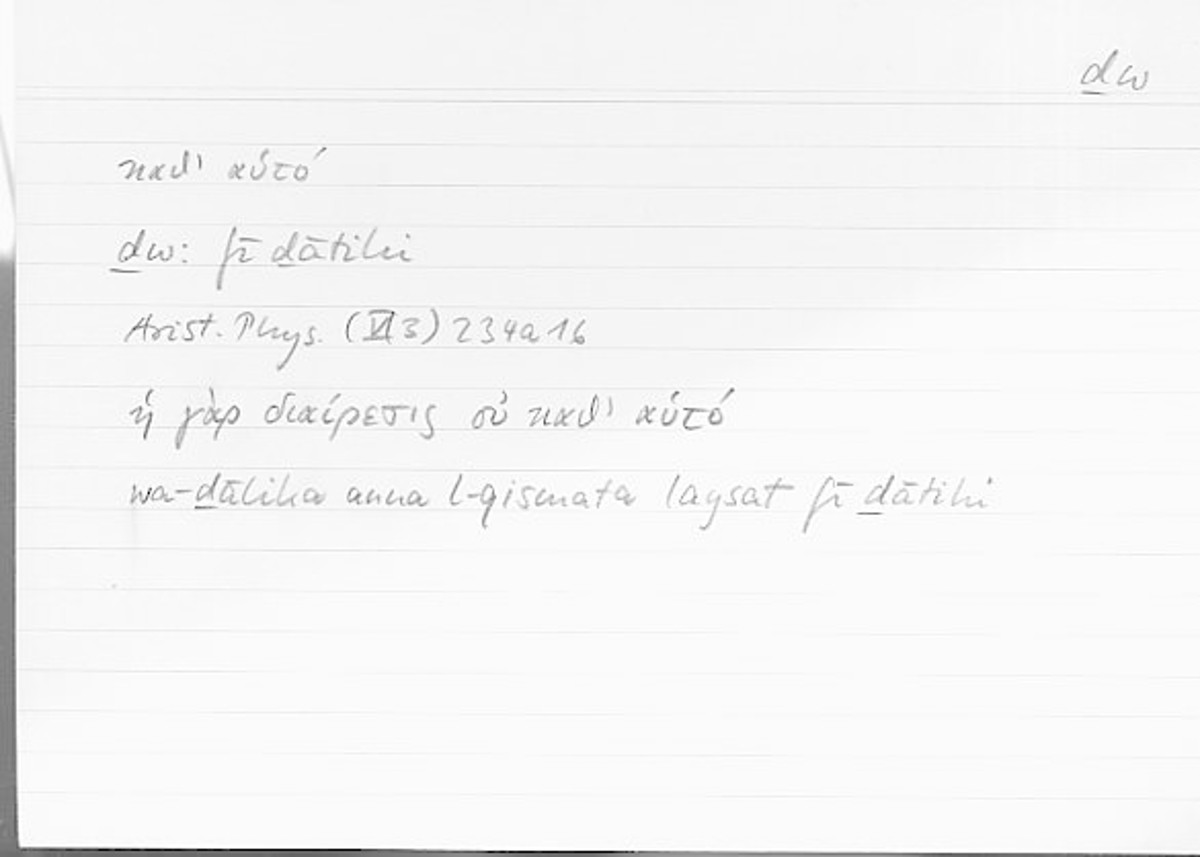 ḏw
καθ' αὑτό
ḏw: fī ḏātihi
Arist. Phys. (VI 3) 234a16
ἡ γὰρ διαίρεσις οὐ καθ' αὑτό
wa-ḏālika anna l-qismata laysat fī ḏātihi